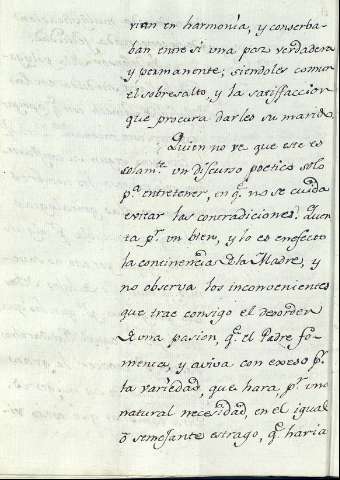 vian en harmonía, y conserba-
ban entre si una paz verdadera
y permanente; siendoles comun
el sobresalto, y la satisfaccion
que procura darles su marido.
Quien no ve que este es
solamte. un discurso poetico solo
pa. entretener, en q. no se cuida
evitar las contradiciones. Cuen
ta pr. un bien, y lo es enefecto
la continencia de la Madre, y
no observa los inconvenientes
que trae consigo el desorden
de una pasion, q. el Padre fo-
menta, y aviva con exceso pr.
la variedad, que hara, pr. una
natural necesidad, en el igual
ō semejante estrago, q. haria